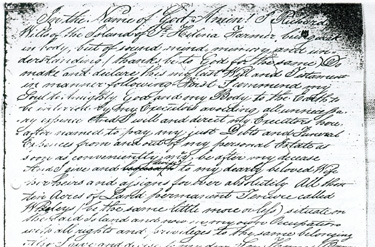 In the Name of God, Amen! I Richard
Wills of the Island of St Helena Farmer, being sick
in body, but of sound mind, memory and un-
derstanding (thanks be to God for the same) Do
make and declare this my last Will and Testament
in manner following. First I recommend my
Soul to Almighty God and my Body to the Earth to
be interred by my Executors and
And I will and direct my Executors here
after named to pay my just Debts and Funeral
Expences from and out of my personal Estate as
soon as conveniently may be after my decease
And I give and to my dearly beloved Wife
her heirs and assigns for ever absolutely All that
Acres of Land permanent Tenure called
Wills (be the same little more or less) situate on
the said Island and now in my own Occupation
with all rights and privileges to the same belonging